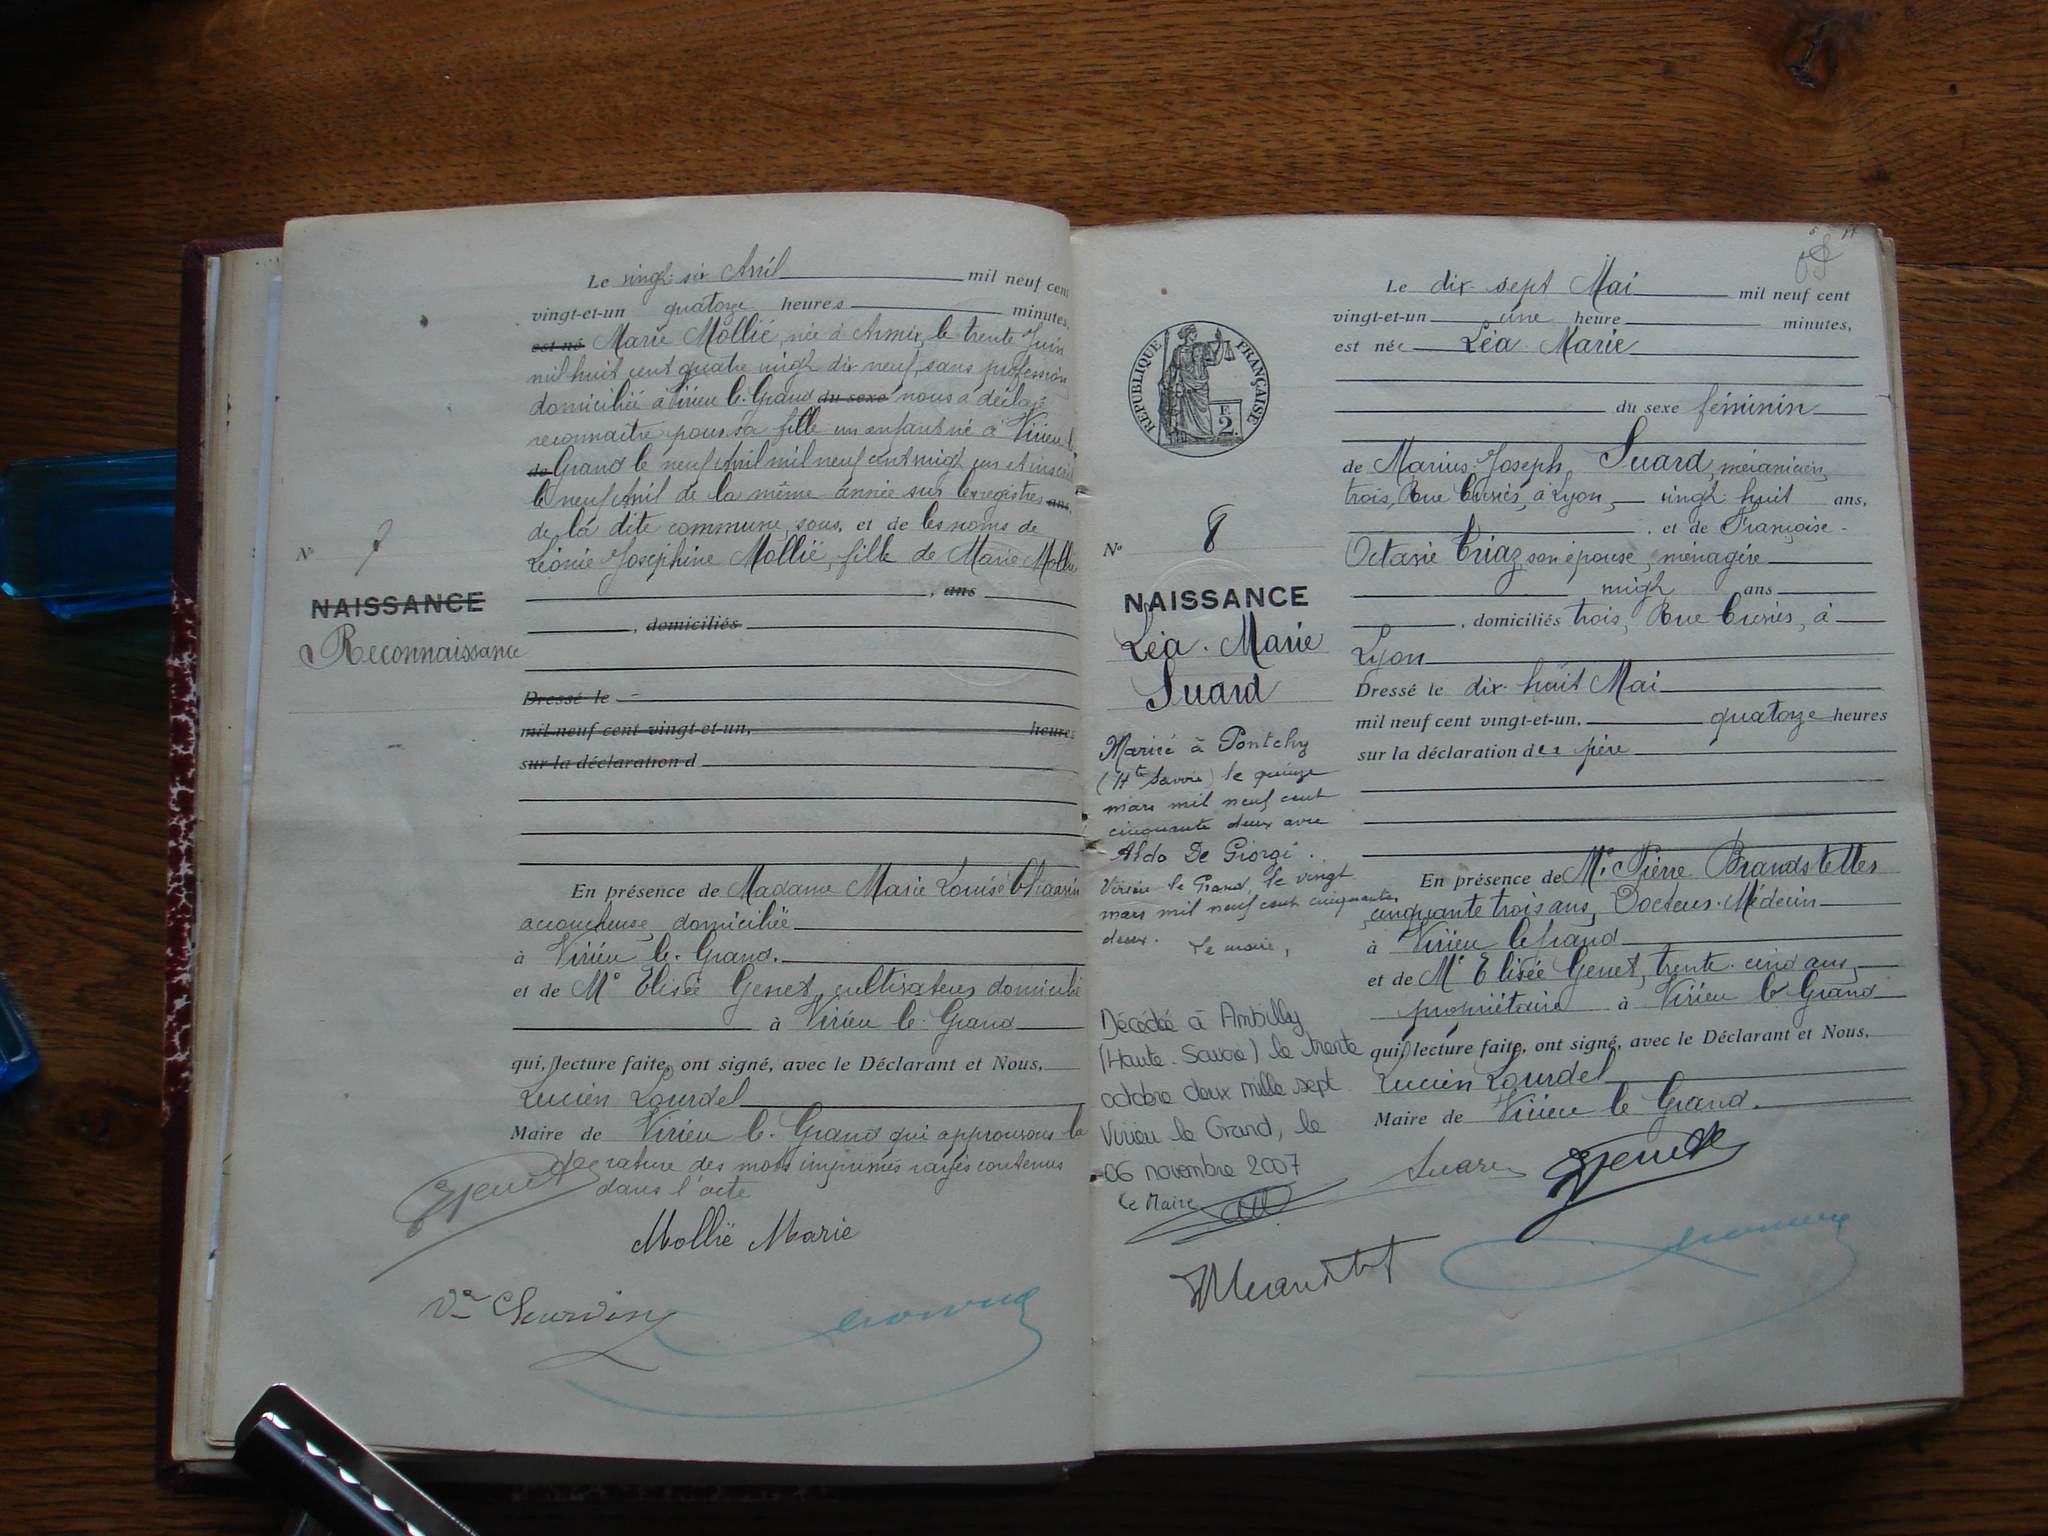 Le vingt six Avril mil neuf cent
vingt-et-un quatorze heures minutes,
est né Marie Mollié, née à le trente Juin
mil huit cent quatre vingt dix neuf, sans profession
domiciliée à Virieu le Grand du sexe nous a déclaré
reconnaitre pour sa fille un enfant né à Virieu le
de Grand le neuf Avril mil neuf cent vingt un et inscrit
le neuf Avril de la même année sur les registres ans,
de la dite commune, sous, et de les noms de
Léonie Joséphine Mollié, fille de Marie Mollié
, ans
, domiciliés
Dressé le
mil neuf cent vingt-et-un, heures
sur la déclaration d
En présence de Madame Marie Louise
accoucheuse, domiciliée
à Virieu le Grand.
et de Mr Elisée Genet, cultivateur domicilié
à Virieu le Grand
qui, lecture faite, ont signé, avec le Déclarant et Nous,
Lucien Lourdel
Maire de Virieu le Grand qui approuvons la
rature des mots imprimés rayés contenus
dans l'acte
Mollië Marie
Vve
No 7
NAISSANCE
Reconnaissance
RÉPUBLIQUE FRANÇAISE
F.
2.
No 8
NAISSANCE
Léa. Marie
Suard
Mariée à Pontchy
(Hte Savoie) le quinze
mars mil neuf cent
cinquante deux avec
Aldo De Giorgi.
Virieu le Grand, le vingt
mars mil neuf cent cinquante
deux. Le maire,
Décédée à Ambilly
(Haute-Savoie) le trente
octobre deux mille sept
Virieu le Grand, le
06 novembre 2007
Le Maire
Le dix-sept Mai mil neuf cent
vingt-et-un une heure minutes,
est née Léa Marie
du sexe féminin
de Marius Joseph Suard, mécanicien,
trois, Rue Curies, à Lyon, vingt huit ans,
, et de Françoise-
Octavie Triaz, son épouse, ménagère
vingt ans
, domiciliés trois, Rue Curies, à
Lyon
Dressé le dix-huit Mai
mil neuf cent vingt-et-un, quatorze heures
sur la déclaration du père
En présence de Mr Pierre Brandstetter
cinquante trois ans, Docteur-Médecin
à Virieu le Grand
et de Mr Elisée Genet, trente-cinq ans,
propriétaire à Virieu le Grand
qui, lecture faite, ont signé, avec le Déclarant et Nous,
Lucien Lourdel
Maire de Virieu le Grand.
Suard